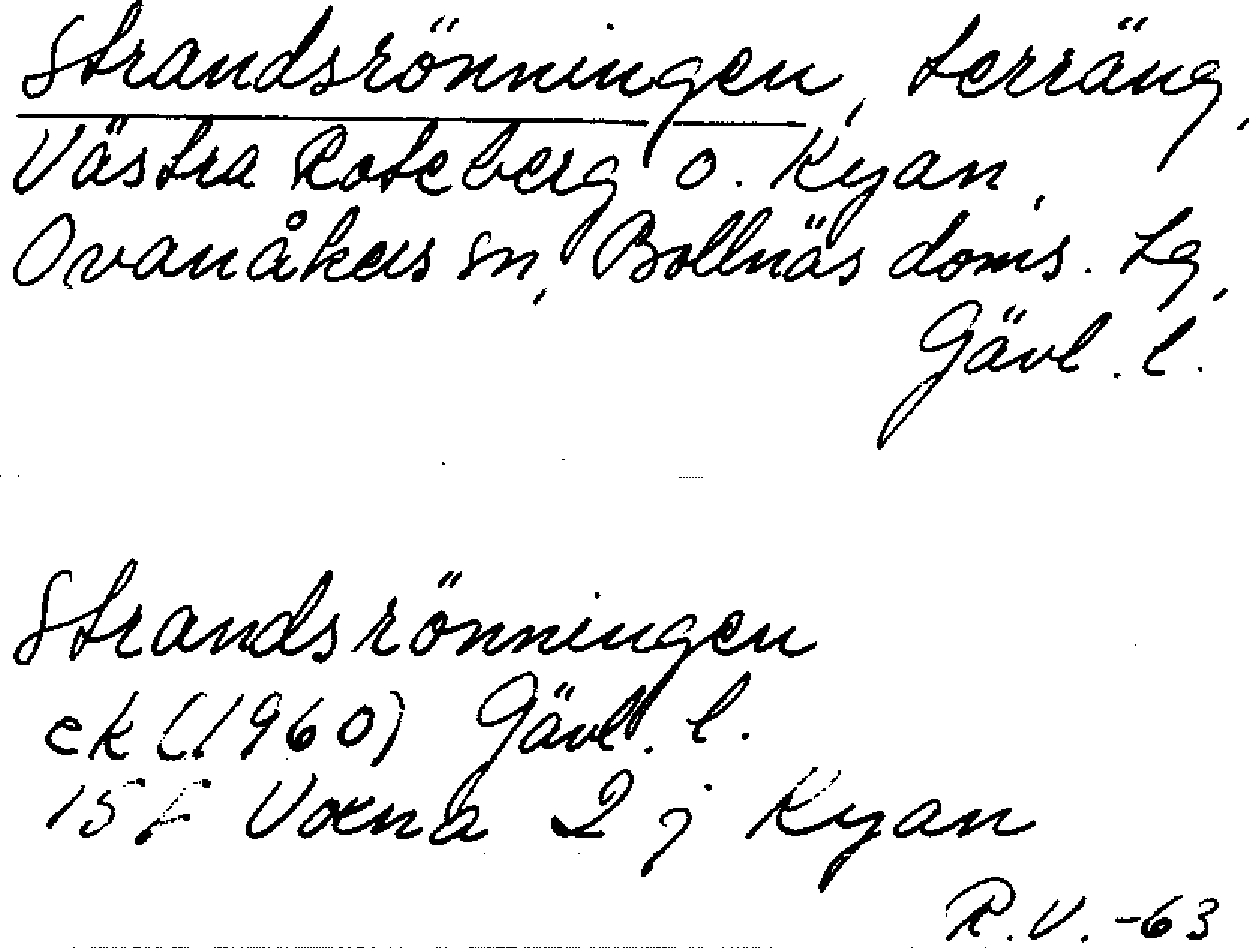 Strandsrönningen, terräng,
Västra Roteberg o. Kyan,
Ovanåkers sn, Bollnäs doms. tg,
Gävl. l.
Strandsrönningen
ek (1960) Gävl. l.
15 F Voxna 2 j Kyan
R.V. -63